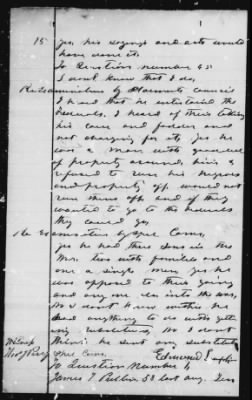 15 yes, his sayings and acts would
have done it.
To Question number 43
I don't know that I do,
Re Examination by Claimants council
I heard that he entertained the
Federals. I heard of their taking
his corn and fodder and
not charging for it, yes he
was a man with good deal
of property around him & 
refused to run his negroes
and property off would not
run them off and if they
wanted to go to the Federals
they could go,
Re Examination by Spec Com,
yes he had three sons in the
Army two with families and
one a single man, yes he
was opposed to their going
and any one into the war,
No I don't know whether he
had anything to do with
substitutes, No I don't
think he sent any substitute
Witness
Spec Com.
Edmond
To Question Number 1,
James T 53 last Aug. Ten